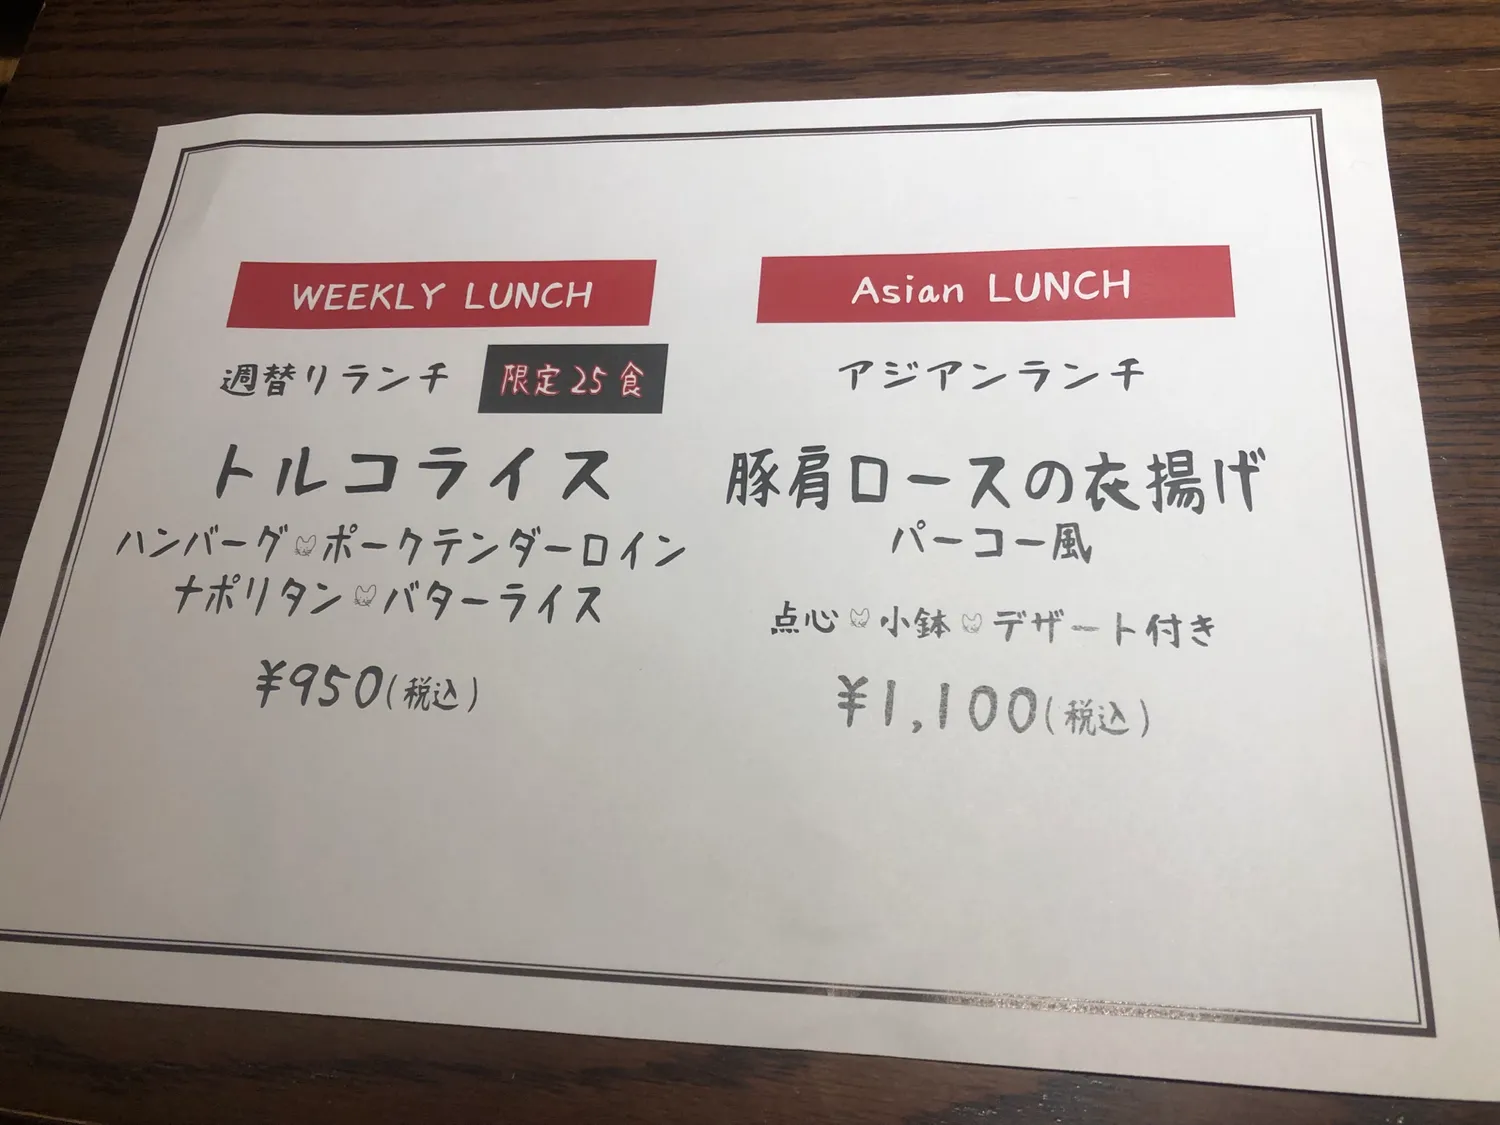 WEEKLY LUNCH
週替りランチ 限定25食
トルコライス
ハンバーグ ポークテンダーロイン
ナポリタン バターライス
¥950(税込)
Asian LUNCH
アジアンランチ
豚肩ロースの衣揚げ
パーコー風
点心 小鉢 デザート付き
¥1,100(税込)